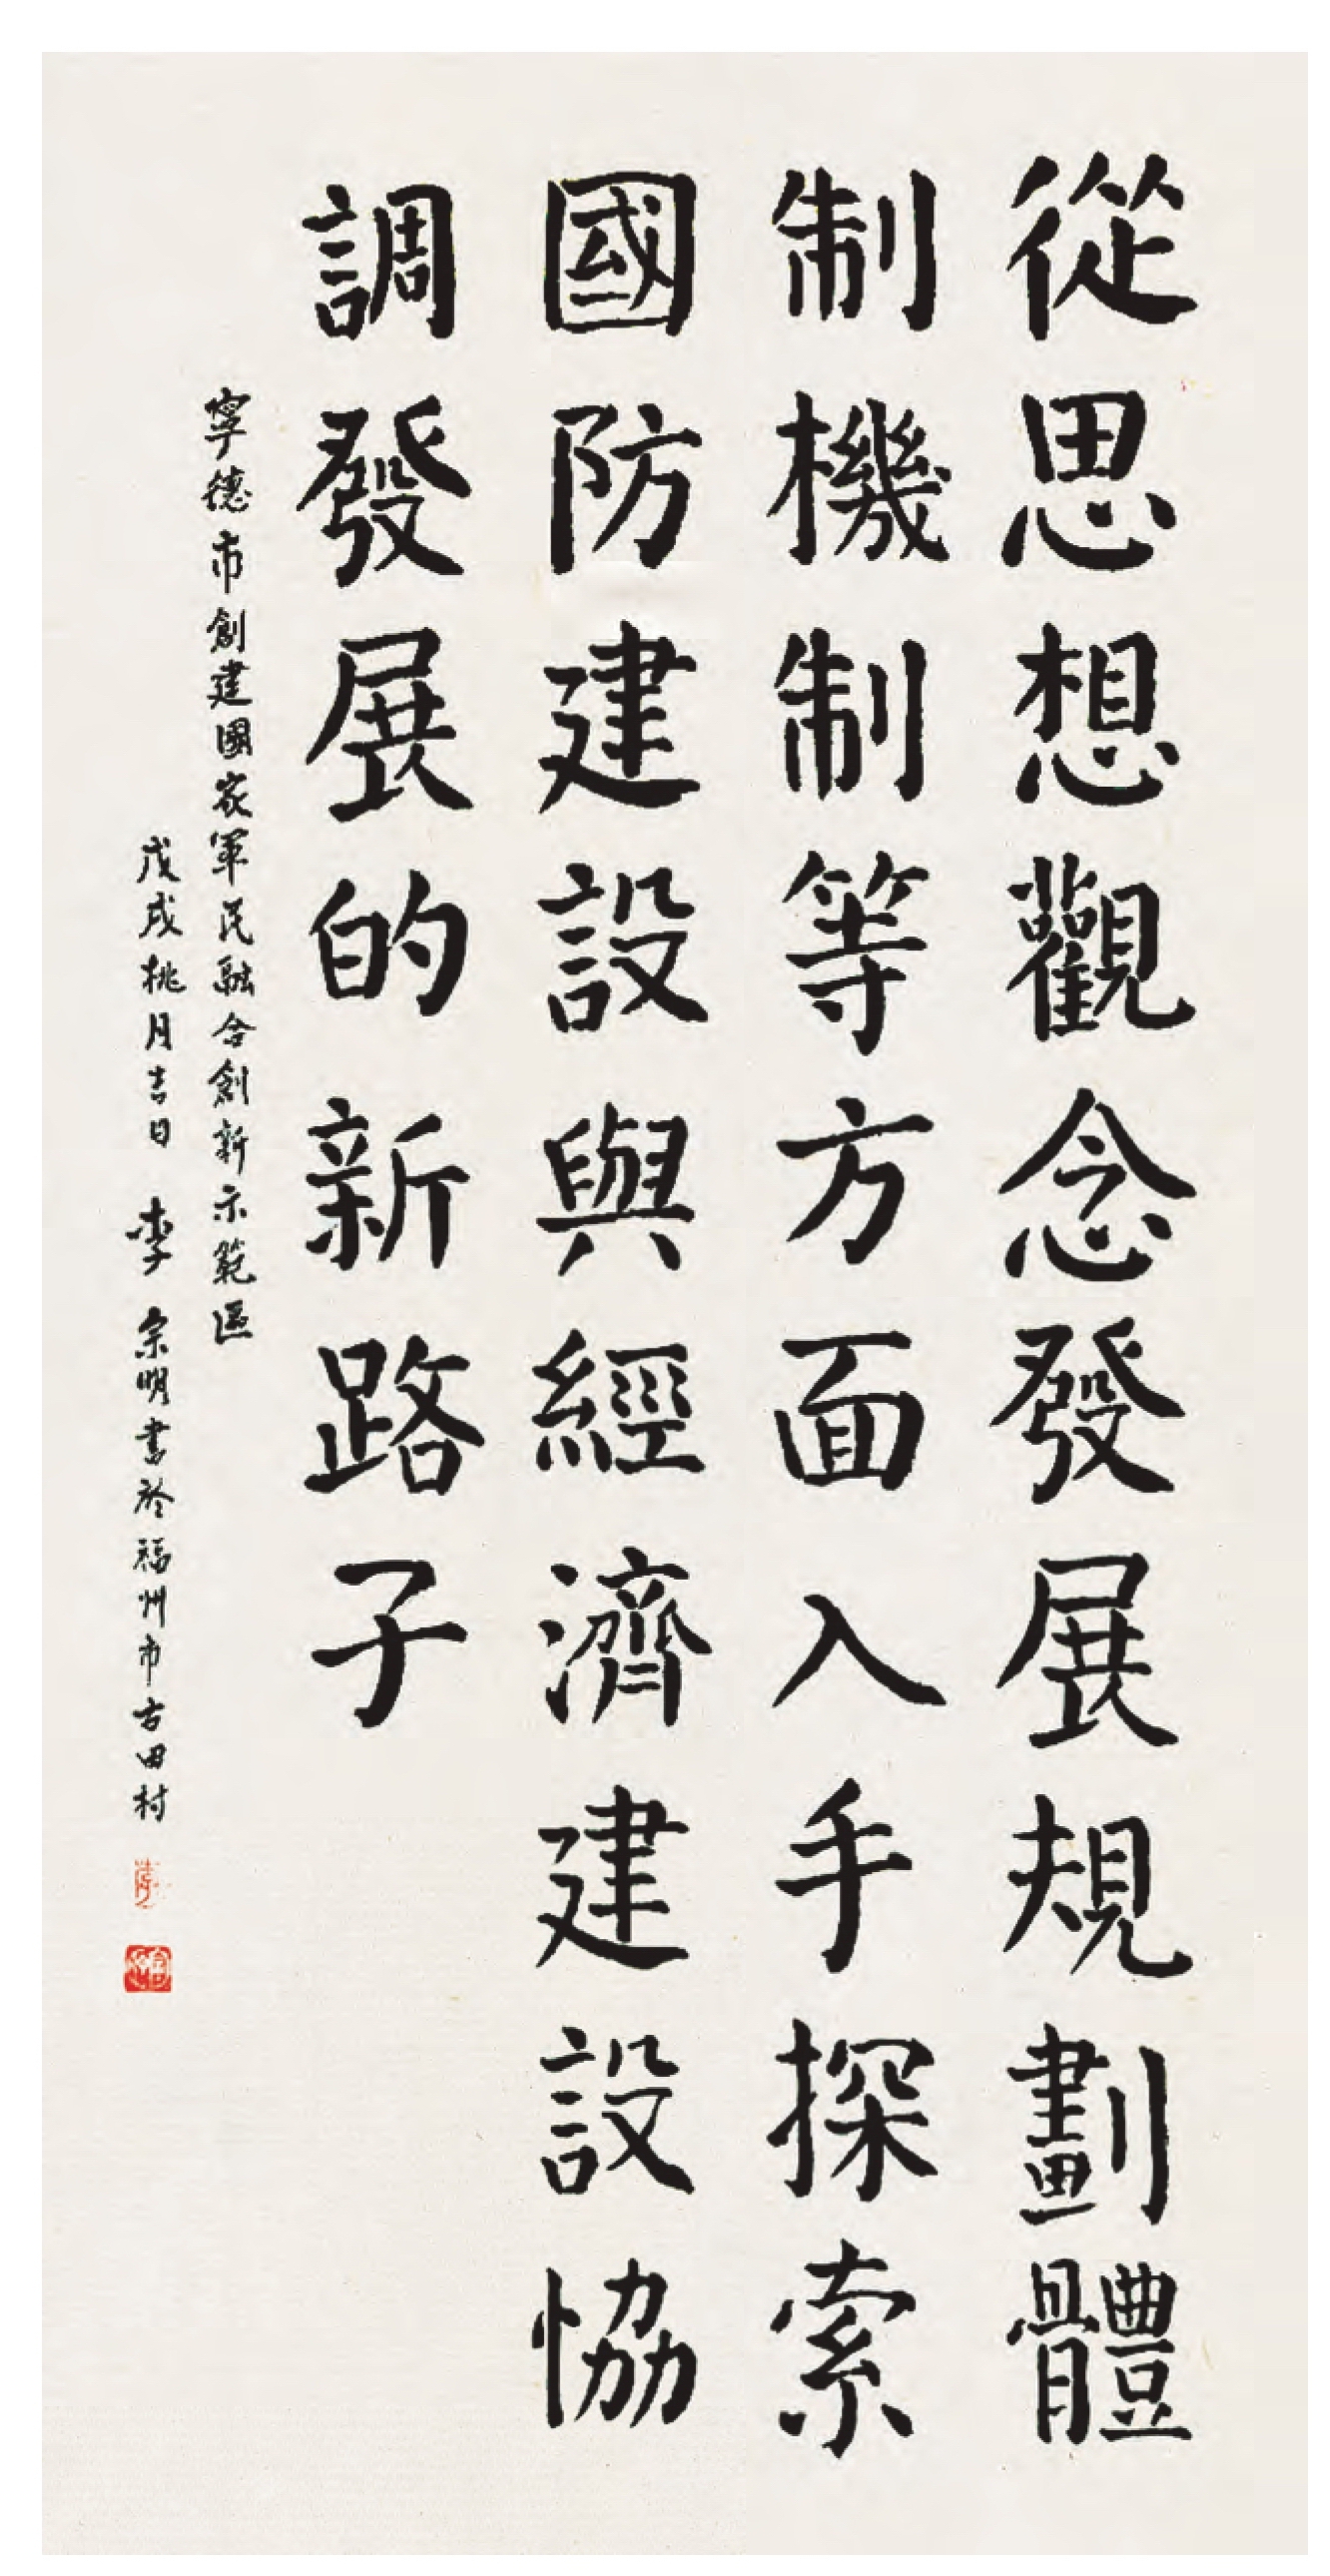 從思想觀念發展規劃體
制機制等方面入手探索
國防建設與經濟建設恊
調發展的新路子
寧德市創建國家軍民融合創新示範區
戊戌桃月吉日 李宗明書於福州市古田村